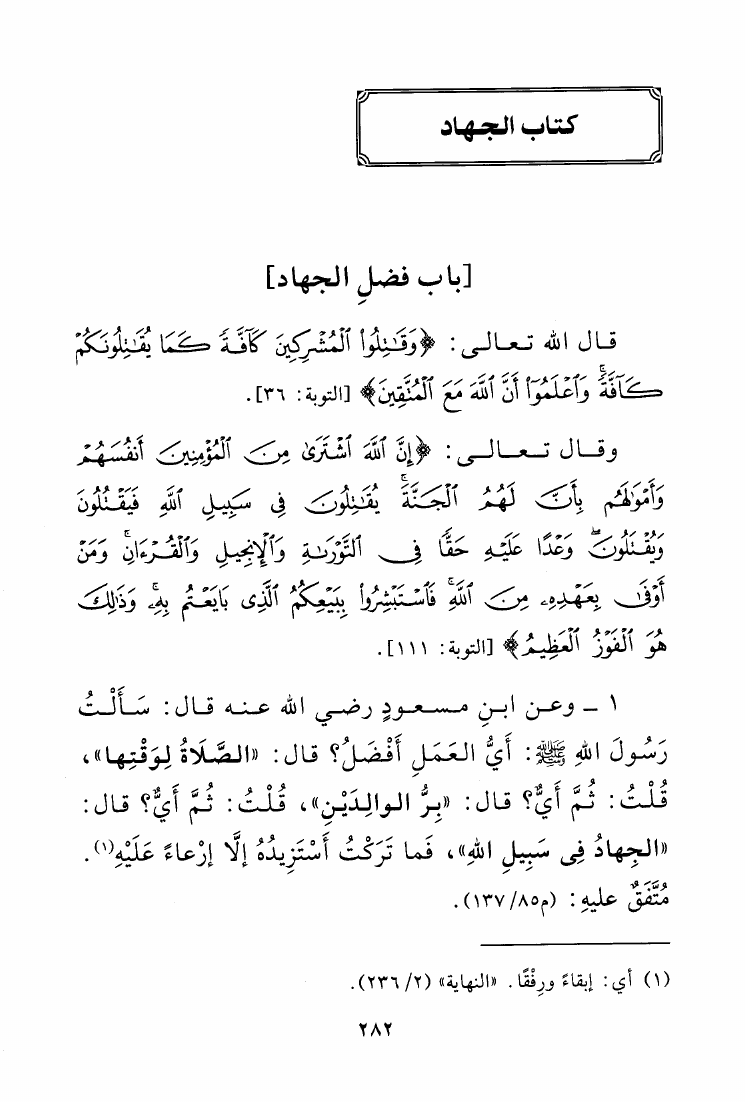 كتاب الجهاد
[باب فضلِ الجهاد]
قال الله تعالى: ﴿وَقَٰتِلُوا۟ ٱلْمُشْرِكِينَ كَآفَّةً كَمَا يُقَٰتِلُونَكُمْ
كَآفَّةً ۚ وَٱعْلَمُوٓا۟ أَنَّ ٱللَّهَ مَعَ ٱلْمُتَّقِينَ﴾ [التوبة: ٣٦].
وقال تعالى: ﴿إِنَّ ٱللَّهَ ٱشْتَرَىٰ مِنَ ٱلْمُؤْمِنِينَ أَنفُسَهُمْ
وَأَمْوَٰلَهُم بِأَنَّ لَهُمُ ٱلْجَنَّةَ ۚ يُقَٰتِلُونَ فِى سَبِيلِ ٱللَّهِ فَيَقْتُلُونَ
وَيُقْتَلُونَ ۖ وَعْدًا عَلَيْهِ حَقًّا فِى ٱلتَّوْرَىٰةِ وَٱلْإِنجِيلِ وَٱلْقُرْءَانِ ۚ وَمَنْ
أَوْفَىٰ بِعَهْدِهِۦ مِنَ ٱللَّهِ ۚ فَٱسْتَبْشِرُوا۟ بِبَيْعِكُمُ ٱلَّذِى بَايَعْتُم بِهِۦ ۚ وَذَٰلِكَ
هُوَ ٱلْفَوْزُ ٱلْعَظِيمُ﴾ [التوبة: ١١١].
١ ـ وعن ابنِ مسعودٍ رضي الله عنه قال: سَأَلْتُ
رَسُولَ اللهِ ﷺ: أَيُّ العَمَلِ أَفْضَلُ؟ قال: «الصَّلَاةُ لِوَقْتِها»،
قُلْتُ: ثُمَّ أَيٌّ؟ قال: «بِرُّ الوالِدَيْنِ»، قُلْتُ: ثُمَّ أَيٌّ؟ قال:
«الجِهادُ فِي سَبِيلِ اللهِ»، فَما تَرَكْتُ أَسْتَزِيدُهُ إِلَّا إِرْعاءً عَلَيْهِ(١).
مُتَّفَقٌ عليهِ: (م١٣٧/٨٥).
(١) أي: إبقاءً ورِفْقًا. «النهاية» (٢٣٦/٢).
٢٨٢